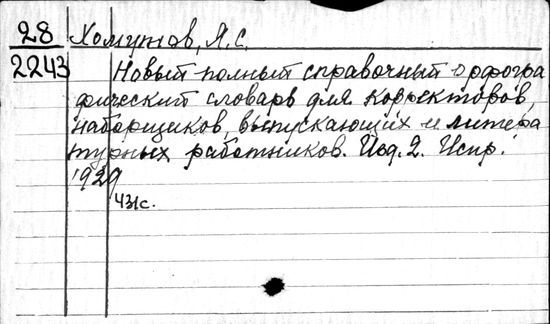 28 Хомутов, Я.С.
2243 Новый полный справочный орфогра
фический словарь для корректоров,
наборщиков, выпускающих и литера
турных работников. Изд. 2. Испр.
1929
431с.